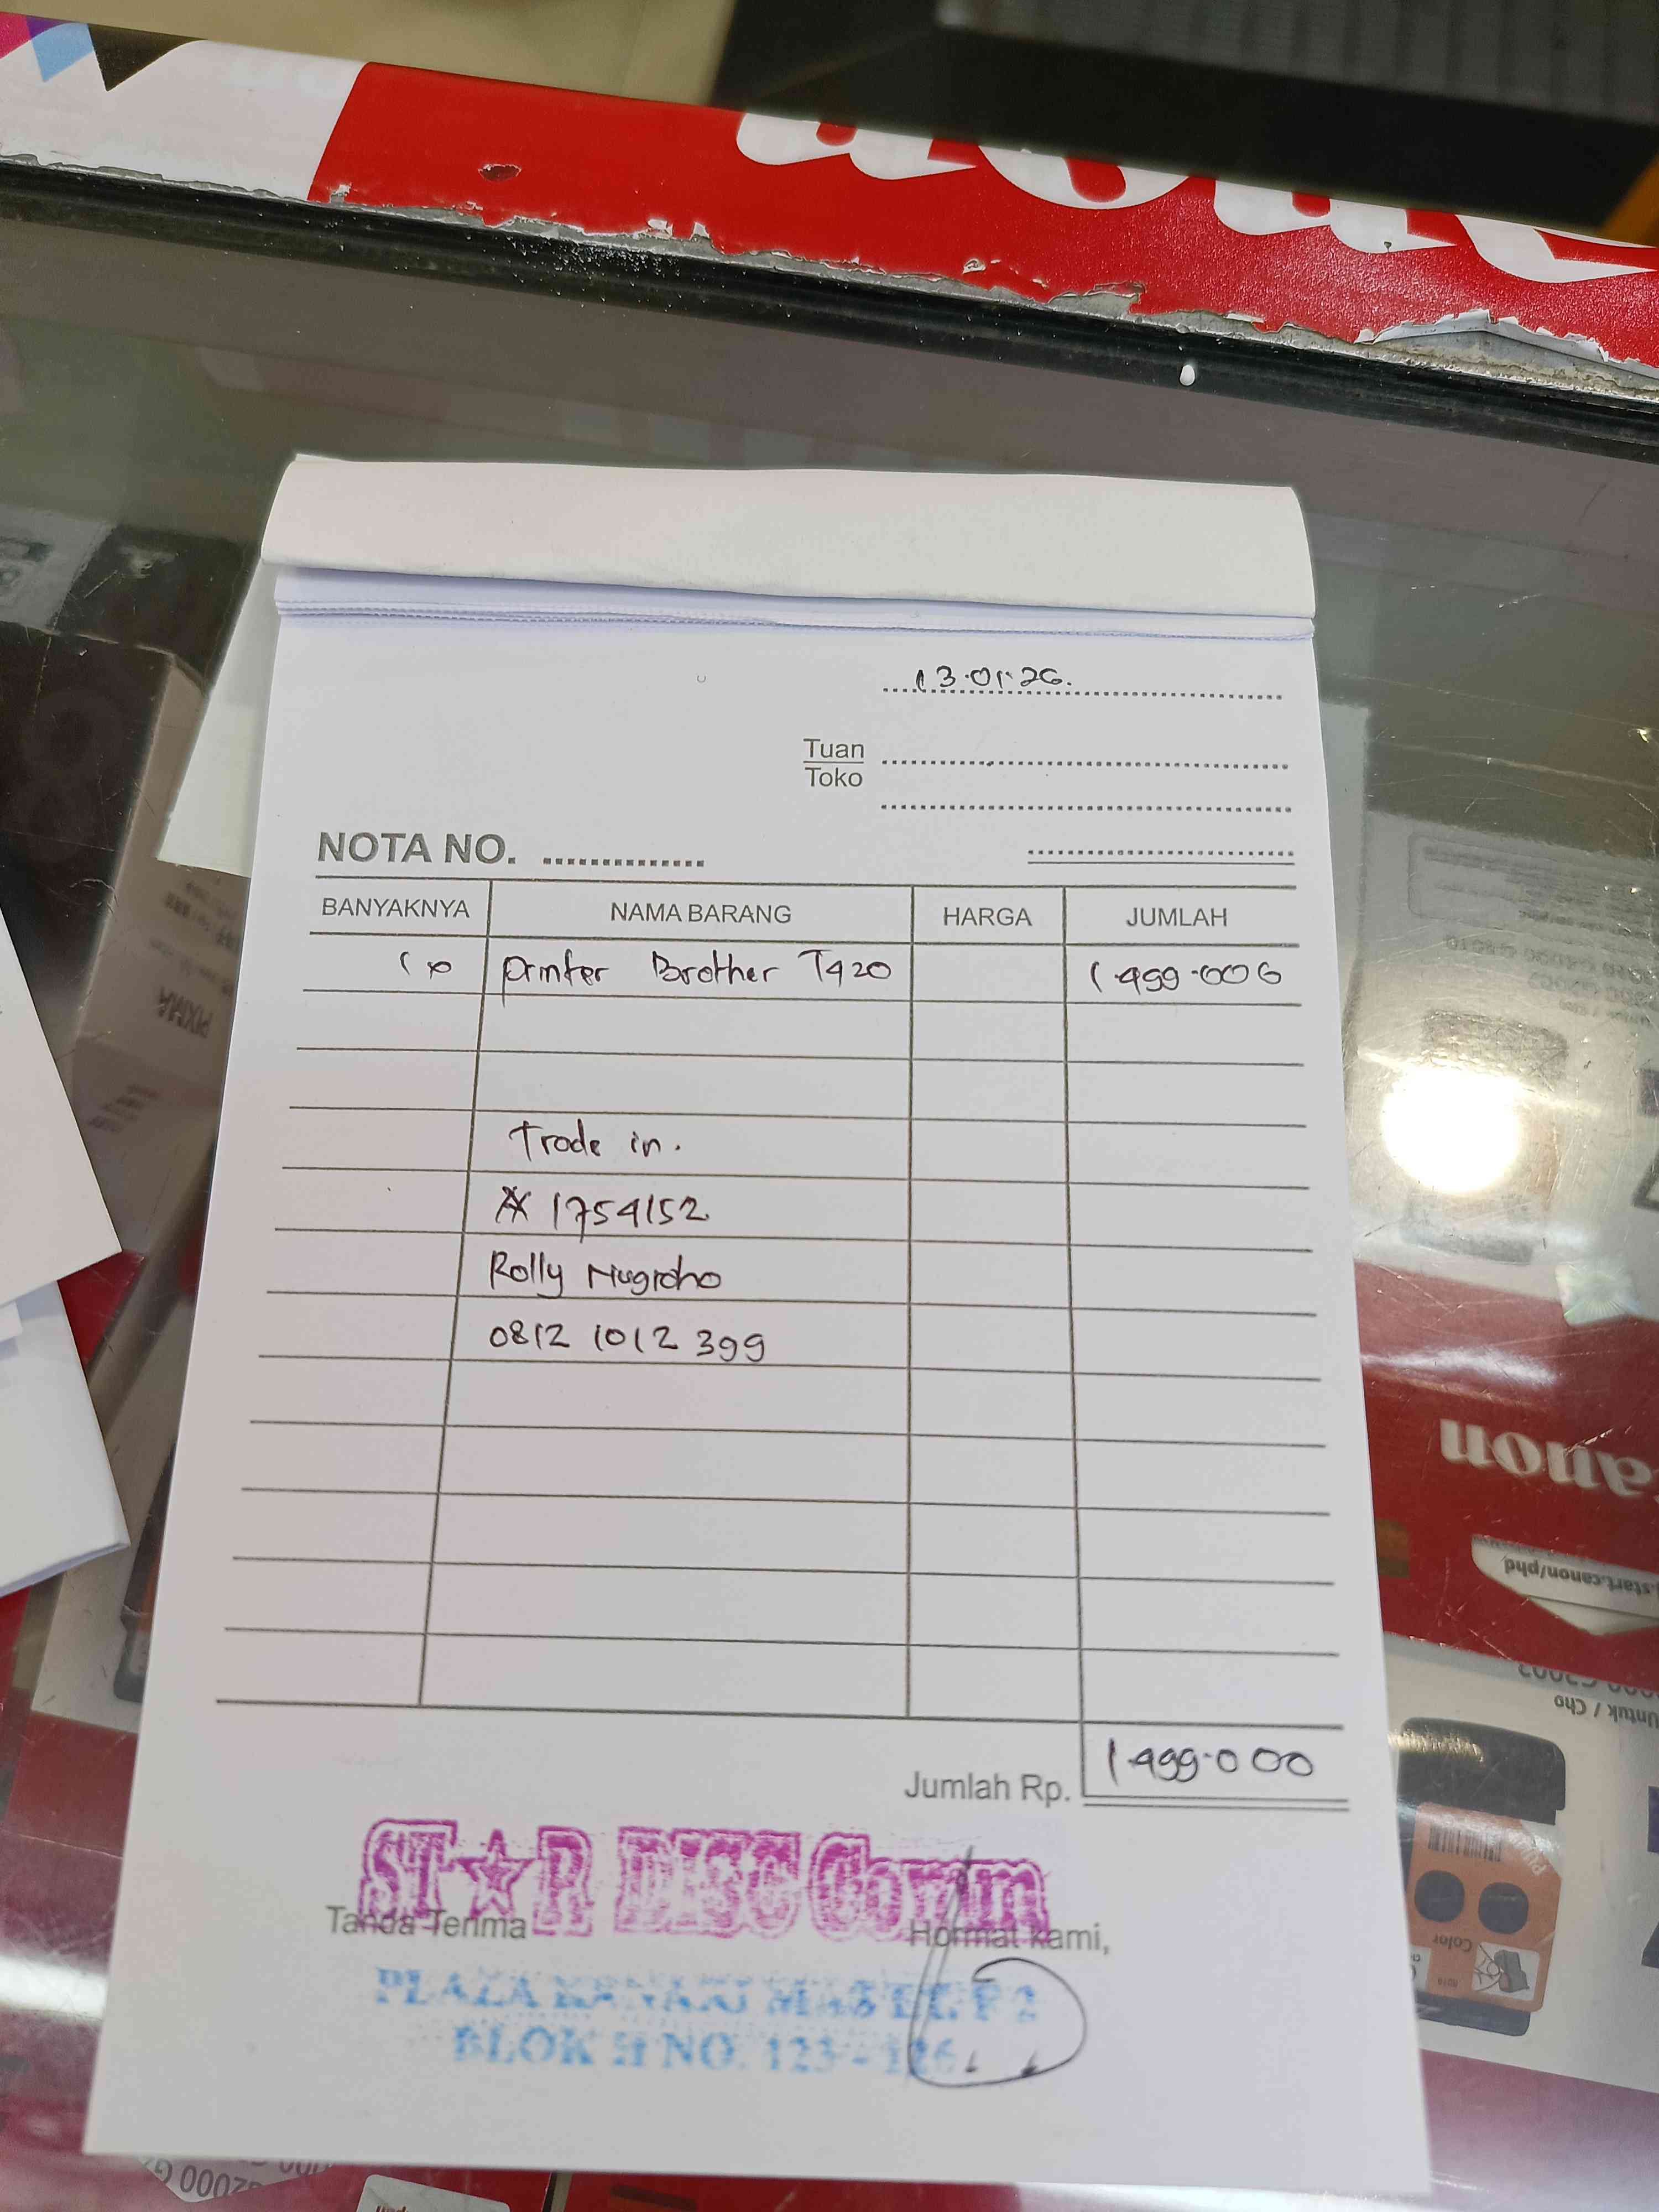 13·01·26.
Tuan
Toko
NOTA NO.
BANYAKNYA NAMA BARANG HARGA JUMLAH
Printer Brother T420 1.499.000
Trade in.
1754152
Rolly Nugroho
0812 1012 399
Jumlah Rp. 1.499.000
ST★R DISC Comm
Tanda Terima Hormat kami,
PLAZA KENARI MAS LT. F2
BLOK H NO. 123 - 126
Canon
start.canon/phd
Untuk / Cho
Color
PIXMA